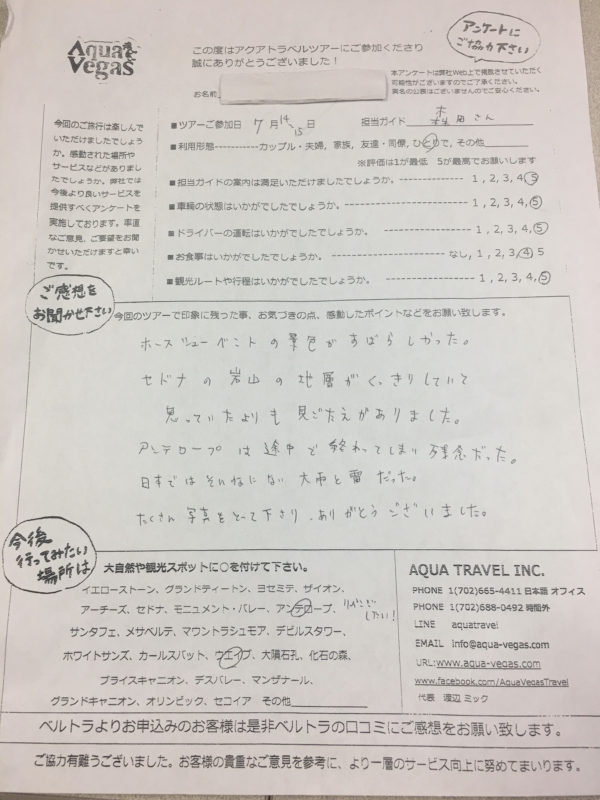 Aqua Vegas
この度はアクアトラベルツアーにご参加くださり
誠にありがとうございました!
アンケートに
ご協力下さい
お名前
本アンケートは弊社Web上で掲載させていただく
可能性がございますのでご了承ください。
実名の公表はございませんのでご安心ください。
今回のご旅行は楽しんで
いただけましたでしょう
か。感動された場所や
サービスなどがありまし
たでしょうか。弊社では
今後より良いサービスを
提供すべくアンケートを
実施しております。率直
なご意見、ご要望をお聞
かせいただけますと幸い
です。
■ツアーご参加日 7月14 15日 担当ガイド 森田さん
■利用形態-----------カップル・夫婦, 家族, 友達・同僚, ひとりで, その他
※評価は1が最低 5が最高でお願いします
■担当ガイドの案内は満足いただけましたでしょうか。---------------- 1, 2, 3, 4, 5
■車輌の状態はいかがでしたでしょうか。---------------------------- 1, 2, 3, 4, 5
■ドライバーの運転はいかがでしたでしょうか。 ---------------- 1, 2, 3, 4, 5
■お食事はいかがでしたでしょうか。 ------------------- なし, 1, 2, 3, 4, 5
■観光ルートや行程はいかがでしたでしょうか。 ---------------- 1, 2, 3, 4, 5
ご感想を
お聞かせ下さい
今回のツアーで印象に残った事、お気づきの点、感動したポイントなどをお願い致します。
ホースシューベントの景色がすばらしかった。
セドナの岩山の地層がくっきりしていて
思っていたよりも見ごたえがありました。
アンテロープは途中で終わってしまい残念だった。
日本ではそんなにない大雨と雷だった。
たくさん写真をとって下さり、ありがとうございました。
今後
行ってみたい
場所は
大自然や観光スポットに○を付けて下さい。
イエローストーン、グランドティートン、ヨセミテ、ザイオン、
アーチーズ、セドナ、モニュメント・バレー、アンテロープ、
リベンジ
したい!
サンタフェ、メサベルデ、マウントラシュモア、デビルスタワー、
ホワイトサンズ、カールスバット、ウエイブ、大隕石孔、化石の森、
ブライスキャニオン、デスバレー、マンザナール、
グランドキャニオン、オリンピック、セコイア その他
AQUA TRAVEL INC.
PHONE 1(702)665-4411 日本語 オフィス
PHONE 1(702)688-0492 時間外
LINE aquatravel
EMAIL info@aqua-vegas.com
URL:www.aqua-vegas.com
www.facebook.com/AquaVegasTravel
代表 渡辺 ミック
ベルトラよりお申込みのお客様は是非ベルトラの口コミにご感想をお願い致します。
ご協力有難うございました。お客様の貴重なご意見を参考に、より一層のサービス向上に努めてまいります。